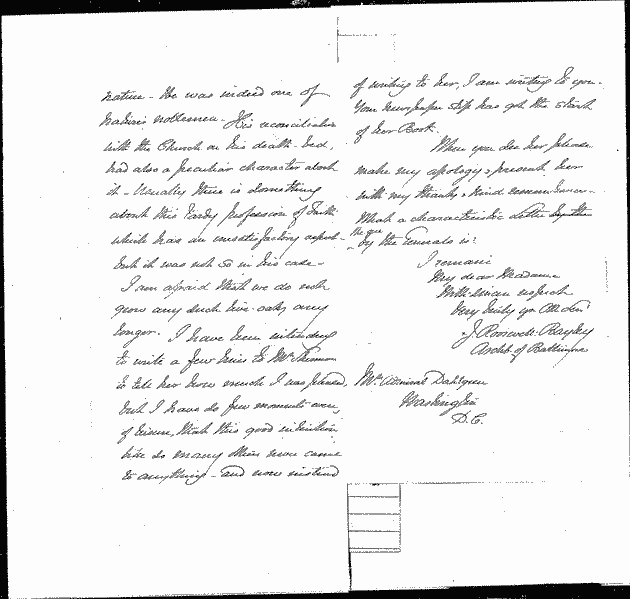 nature - He was indeed one of
nature's noblemen. His reconciliation
with the Church on his death-bed,
had also a peculiar character about
it - Usually there is something
about this tardy profession of Faith
which has an unsatisfactory aspect -
but it was not so in his case -
I am afraid that we do not
grow any such live-oaks any
longer. I have been intending
to write a few lines to Mrs Sherman
to tell her how much I was pleased,
but I have so few moments even,
of leisure, that this good intention
like so many others never came
to anything - and now instead
of writing to her, I am writing to you.
Your newspaper slip has got the start
of her Book.
When you see her please
make my apology & present her
with my thanks & kind remembrances -
What a characteristic letter by the
by the General is!
I remain
My dear Madame
With sincere respect
Very truly yr Obt Svt
J. Roosevelt Bayley
Archb. of Baltimore
Mrs. Admiral Dahlgren
Washington
D.C.